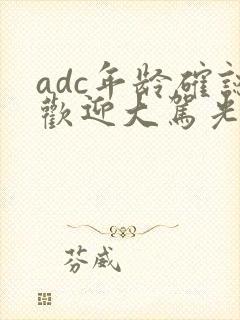 adc年龄確認
歡迎大駕光
芬威